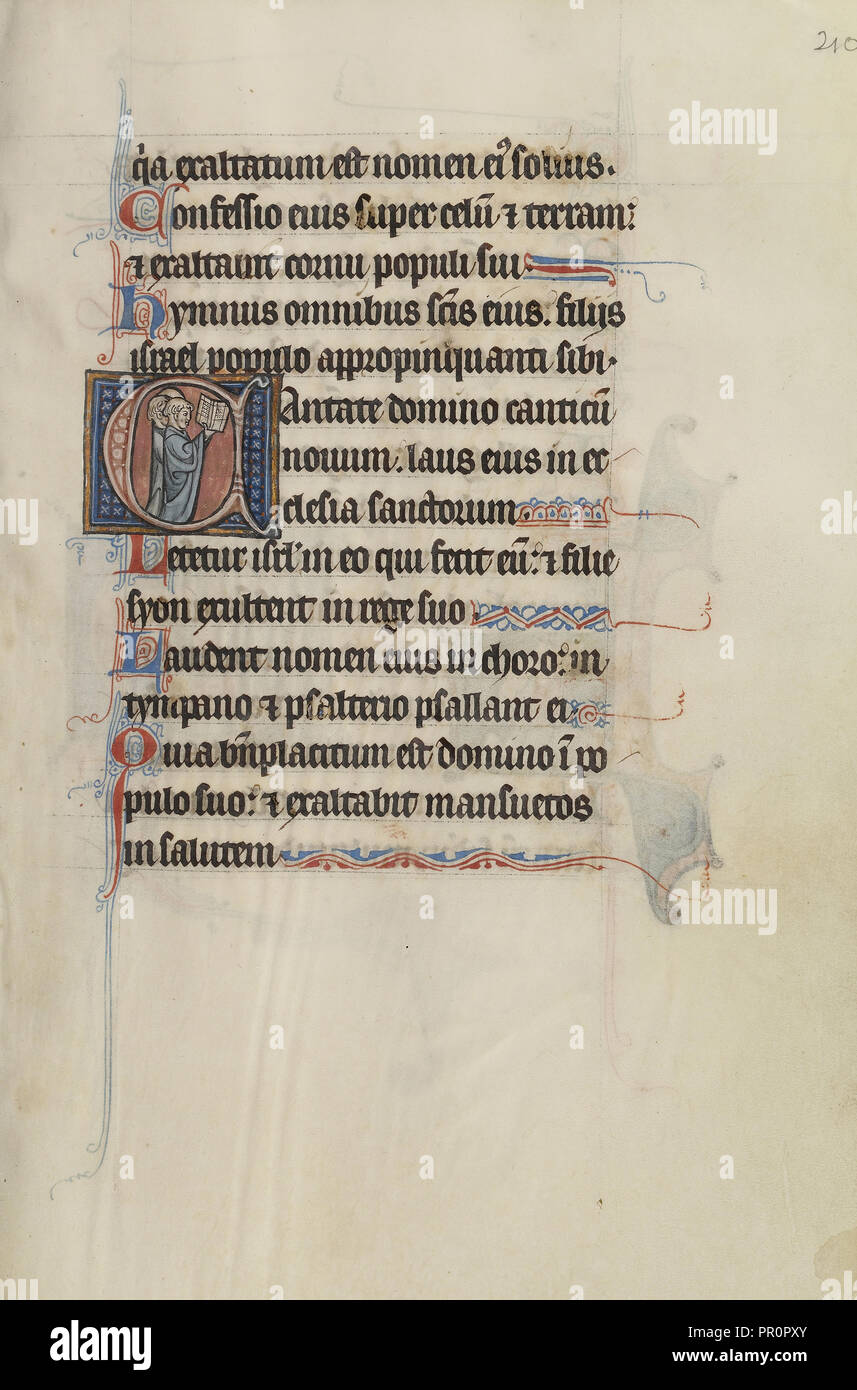 210
q̇a exaltatum est nomen ei⁹ solius.
Confessio eius super celū ⁊ terram:
⁊ exaltauit cornu populi sui
Hymnus omnibus scīs eius. filiis
israel populo appropinquanti sibi.
CAntate domino canticū
nouum. laus eius in ec
clesia sanctorum
Letetur isrl' in eo qui fecit eū: ⁊ filie
syon exultent in rege suo
Laudent nomen eius in choro: in
tympano ⁊ psalterio psallant ei
Quia bn̄placitum est domino ī po
pulo suo: ⁊ exaltabit mansuetos
in salutem
alamy
alamy
Image ID: PR0PXY
www.alamy.com